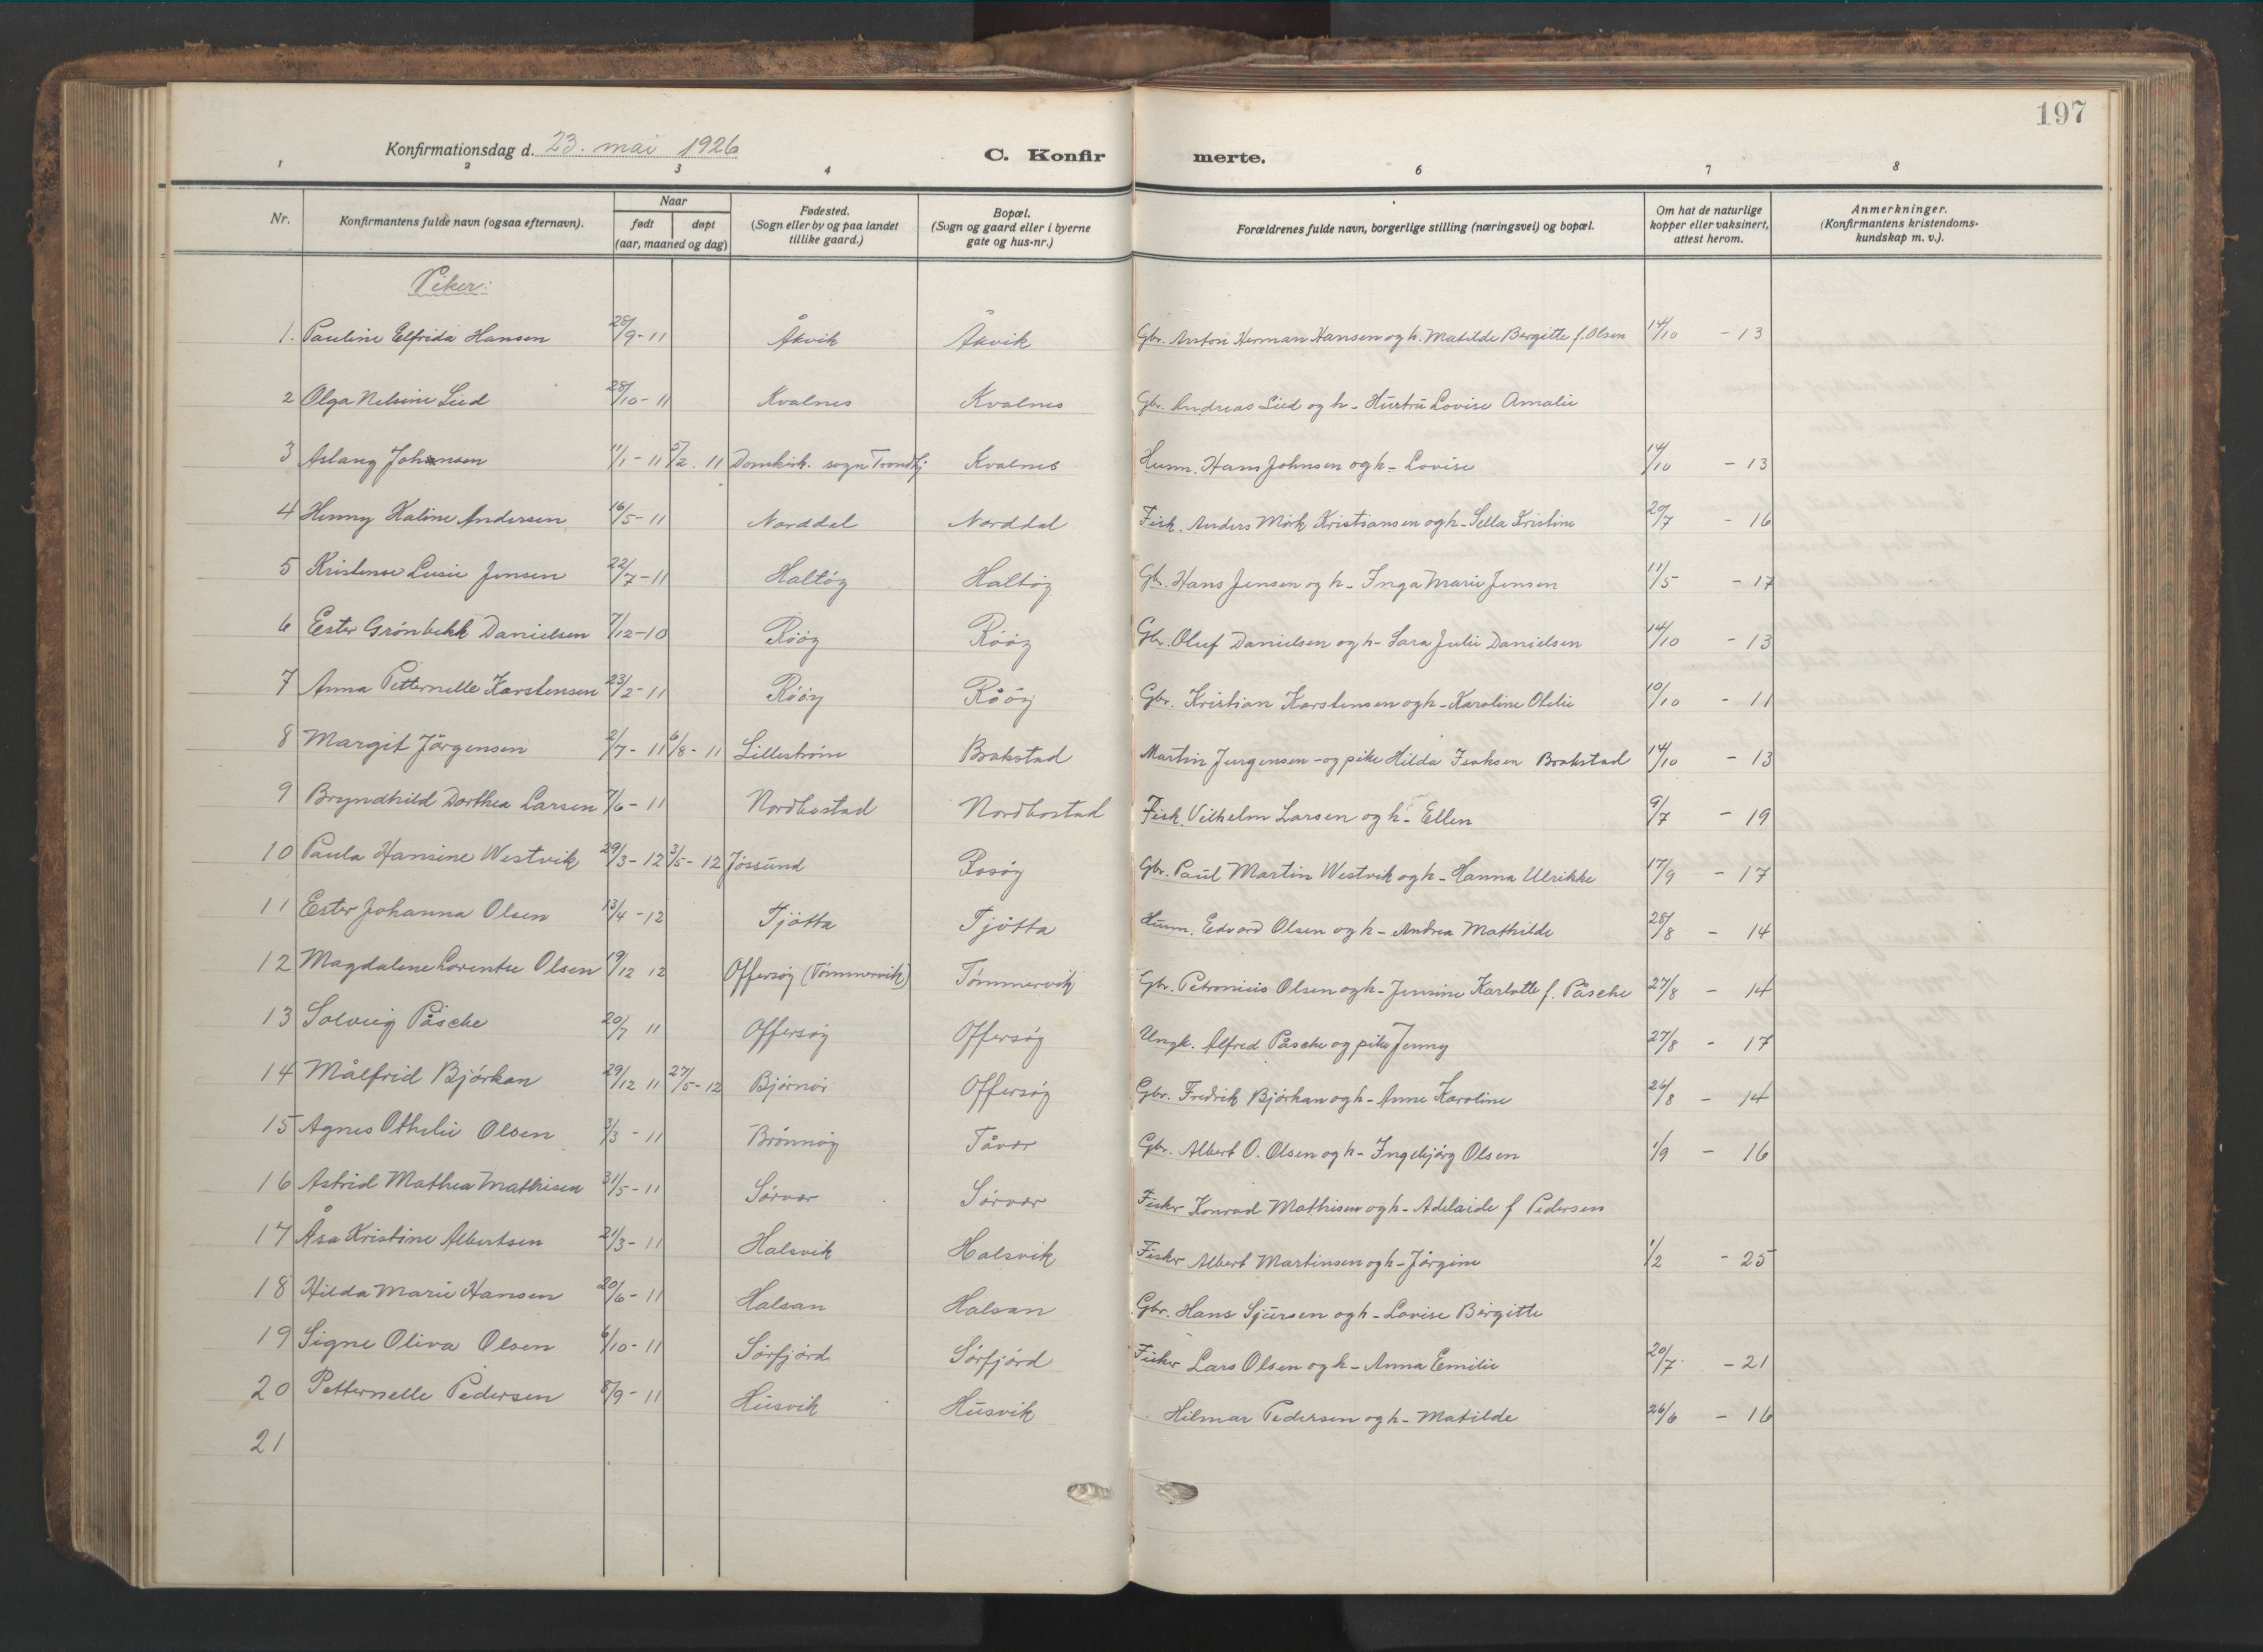 197
Konfirmationsdag d. 23. mai 1926
C. Konfir merte.
1 2 3 4 6 7 8
Nr. Konfirmantens fulde navn (ogsaa efternavn). Naar født døpt (aar, maaned og dag) Fødested. (Sogn eller by og paa landet tillike gaard.) Bopæl. (Sogn og gaard eller i byerne gate og hus-nr.) Forældrenes fulde navn, borgerlige stilling (næringsvei) og bopæl. Om hat de naturlige kopper eller vaksinert, attest herom. Anmerkninger. (Konfirmantens kristendoms-kundskap m. v.).
Piker:
1. Pauline Elfrida Hansen 28/9-11 Åkvik Åkvik Gbr. Anton Herman Hansen og h. Matilde Bergitte f. Olsen 14/10 - 13
2 Olga Nelsine Lied 28/10-11 Kvalnes Kvalnes Gbr. Andreas Lied og h- Hustru Lovise Amalie
3 Aslaug Johnsen 11/1-11 5/2.11 Domkirk. sogn Trondhj Kvalnes Husm. Hans Johnsen og h- Lovise 14/10 - 13
4 Henny Haline Andersen 16/5-11 Norddal Norddal Fisk. Anders Mörk Kristiansen og h- Sella Kristine 20/7 - 16
5 Kristense Lusie Jensen 22/7-11 Haltöy Haltöy Gbr. Hans Jensen og h- Inga Marie Jensen 11/5 - 17
6 Ester Grönbekk Danielsen 7/12-10 Rööy Rööy Gbr. Oluf Danielsen og h- Sara Julie Danielsen 14/10 - 13
7 Anna Petternelle Karstensen 23/2-11 Rööy Rööy Gbr. Kristian Karstensen og h- Karoline Otelie 10/10 - 11
8 Margit Jörgensen 2/7-11 6/8-11 Lilleström Brakstad Martin Jurgensen - og pike Hilda Isaksen Brakstad 14/10 - 13
9 Bryndhild Dorthea Larsen 7/6-11 Nordbostad Nordbostad Fisk. Vilhelm Larsen og h- Ellen 9/7 - 19
10 Paula Hansine Westvik 29/3-12 3/5-12 Jössund Rosöy Gbr. Paul Martin Westvik og h- Hanna Ulrikke 17/9 - 17
11 Ester Johanna Olsen 13/4-12 Tjötta Tjötta Husm. Edvard Olsen og h- Andrea Mathilde 28/8 - 14
12 Magdalene Lorentse Olsen 19/12 12 Offersöy (Tömmervik) Tömmervik Gbr. Petronius Olsen og h- Jensine Karlotte f. Påsche 27/8 - 14
13 Solveig Påsche 20/7 11 Offersöy Offersöy Ungk. Alfred Påsche og pike Jenny 27/8 - 17
14 Målfrid Björkan 29/12 11 27/5-12 Björnör Offersöy Gbr. Fredrik Björkan og h- Anne Karoline 26/8 - 14
15 Agnes Othelie Olsen 3/3-11 Brönnöy Tåvær Gbr. Albert O. Olsen og h- Ingebjörg Olsen 1/9 - 16
16 Astrid Mathea Mathisen 31/5-11 Sörvær Sörvær Fisker Konrad Mathisen og h- Adelaide f Pedersen
17 Åsa Kristine Albertsen 21/3-11 Halsvik Halsvik Fisker Albert Martinsen og h- Jörgine 1/2 - 25
18 Hilda Marie Hansen 20/6-11 Halsan Halsan Gbr. Hans Sjursen og h- Lovise Birgitte
19 Signe Oliva Olsen 6/10-11 Sörfjord Sörfjord Fisker Lars Olsen og h- Anna Emilie 20/7 - 21
20 Petternelle Pedersen 8/9-11 Husvik Husvik Hilmar Pedersen og h- Matilde 26/6 - 16
21